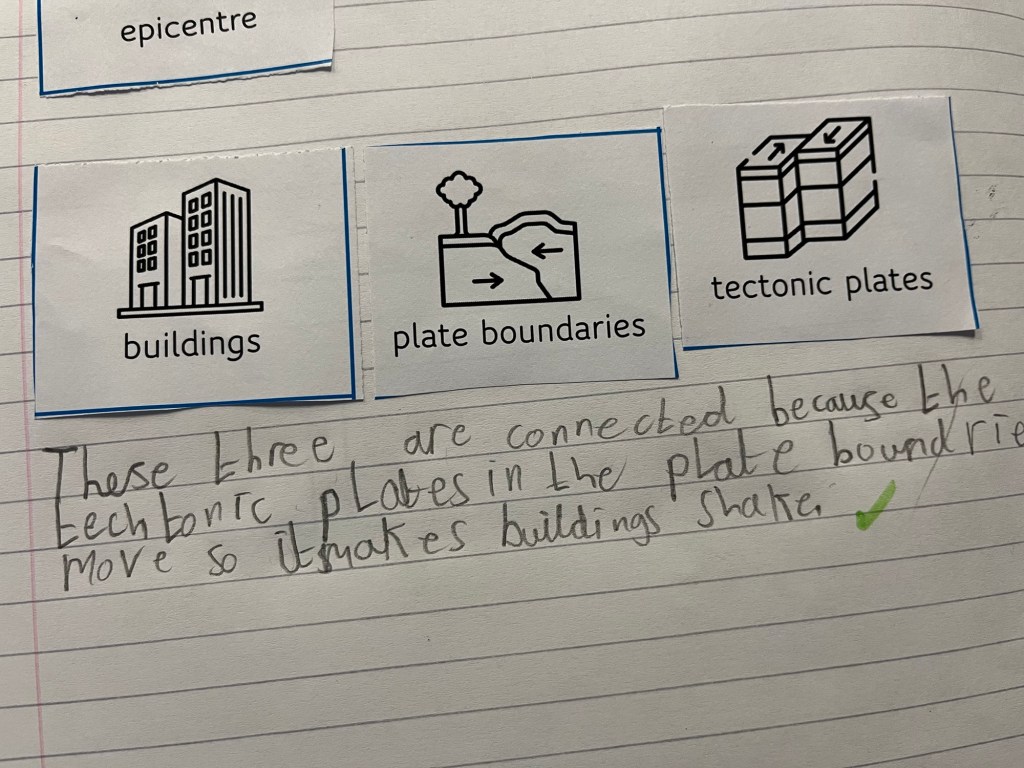 epicentre
buildings
plate boundaries
tectonic plates
These three are connected because the
techtonic plates in the plate boundrie
move so it makes buildings shake.